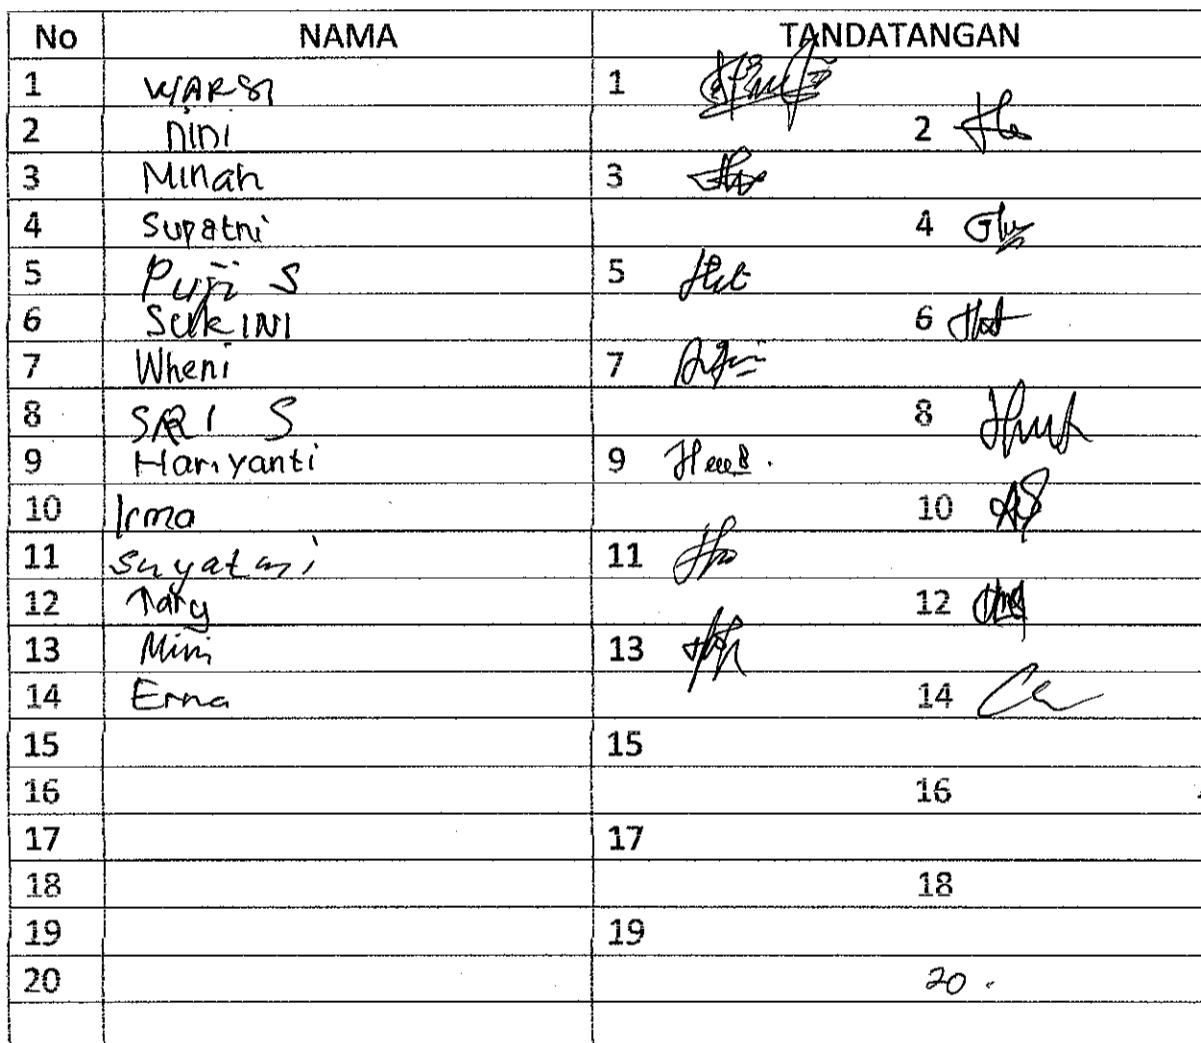 No NAMA TANDATANGAN
1 WARSI 1
2 nini 2
3 Minah 3
4 Supatni 4
5 Puji S 5
6 SUKINI 6
7 Wheni 7
8 SRI S 8
9 Hariyanti 9
10 Irma 10
11 Suyatmi 11
12 Tary 12
13 Mini 13
14 Erna 14
15 15
16 16
17 17
18 18
19 19
20 20.